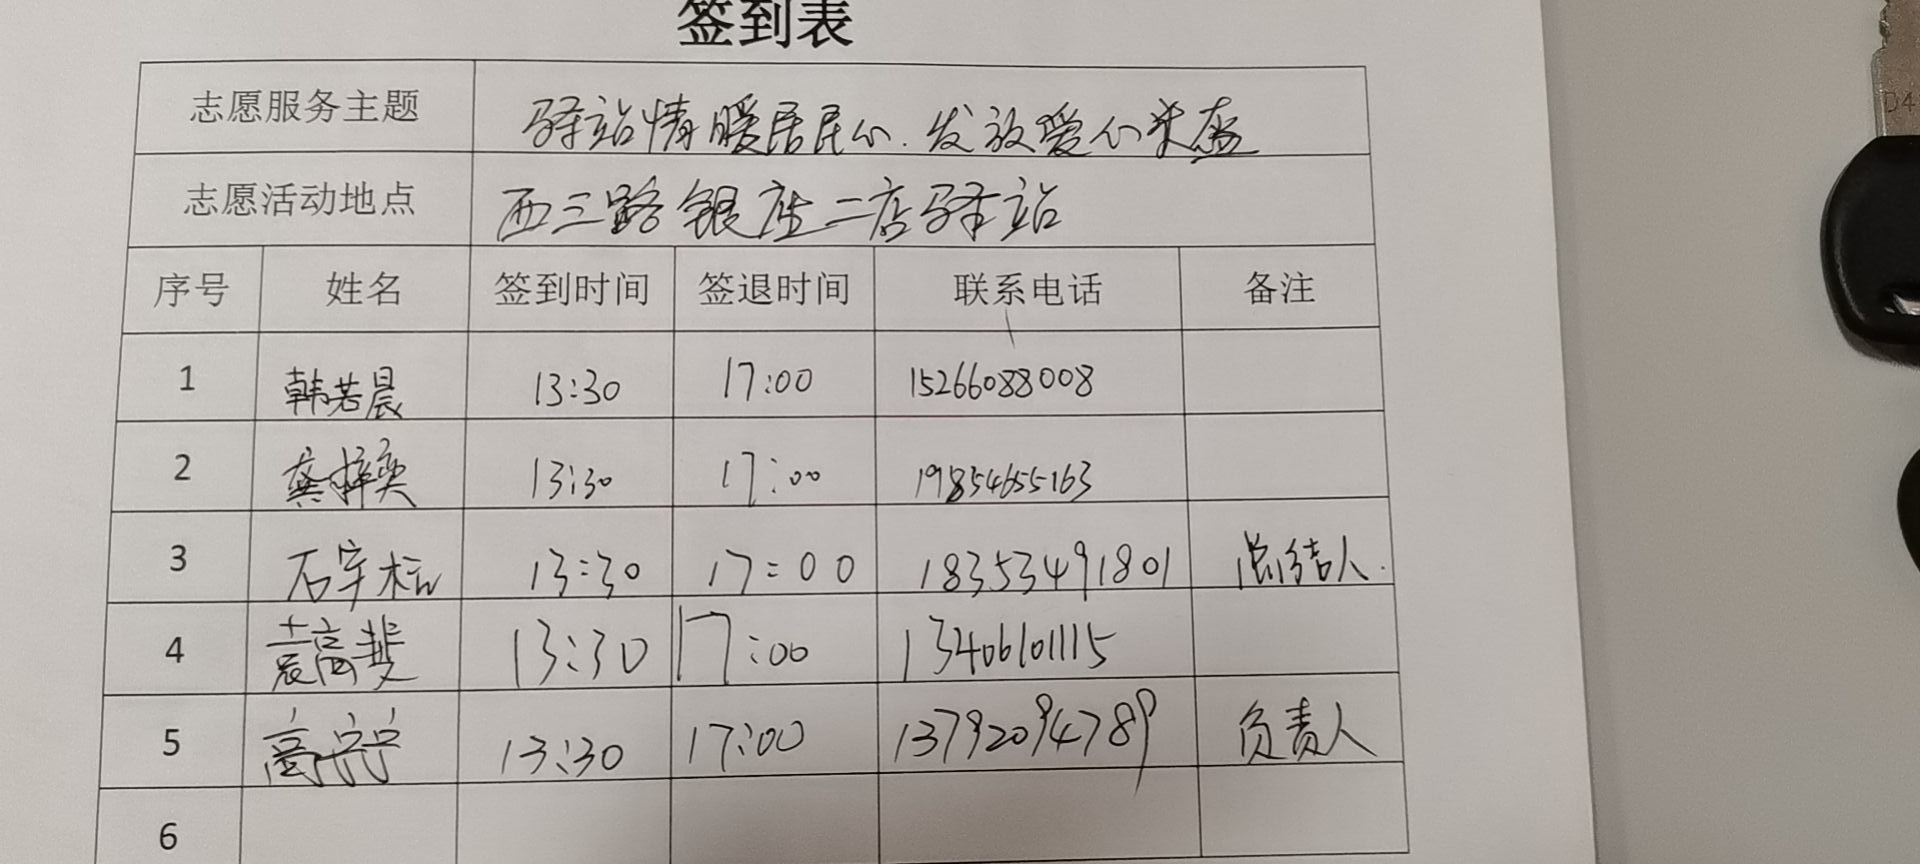 签到表
志愿服务主题 驿站情暖居民心.发放爱心米盔
志愿活动地点 西三路银座二店驿站
序号 姓名 签到时间 签退时间 联系电话 备注
1 韩若晨 13:30 17:00 15266088008
2 龚梓奕 13:30 17:00 19854655163
3 石宇标 13:30 17:00 18353491801 总结人.
4 袁高斐 13:30 17:00 13406101115
5 高宁宁 13:30 17:00 13792094789 负责人
6
D4